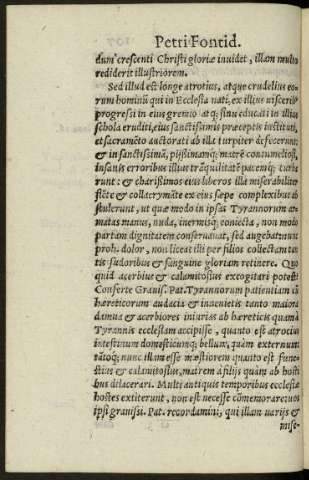 Petri Fontid.
dum crescenti Christi gloriæ inuidet, illam multo
reddiderit illustriorem.
Sed illud est longe atrotius, atque crudelius eo-
rum hominũ qui in Ecclesia nati, ex illius visceribꝰ
progressi in eius gremio atq; sinu educati in illius
schola eruditi, eius sanctissimis præceptis instituti,
et sacramẽto auctorati ab illa turpiter defecerunt:
& in sanctissimã, pijssimamq; matrẽ contumeliosi,
insanis erroribus illius trãquilitatẽ pacemq; turba
runt: & charissimos eius liberos illa miserabiliter
flẽte & collacrymãte ex eius sæpe complexibus ab
stulerunt, ut quæ modo in ipsas Tyrannorum ar-
matas manus, nuda, inermisq; coniecta, non modo
partam dignitatem conseruauat, sed augebat: nunc
proh. dolor, non liceat illi per filios collectam tan
tis sudoribus & sanguine gloriam retinere. Quo
quid acerbius & calamitosius excogitari potest?
Conferte Grauiss. Pat. Tyrannorum patientiam cũ
hæreticorum audacia & inuenietis tanto maiora
damna & acerbiores iniurias ab hæreticis quam à
Tyrannis ecclesiam accipisse, quanto est atrocius
intestinum domesticumq; bellum, quàm externum
tãtoq; nunc illam esse mæstiorem quanto est fune-
stius & calamitosius, matrem à filijs quàm ab hosti
bus dilacerari. Multi antiquis temporibus ecclesiæ
hostes extiterunt, non est necesse cõmemorare: uos
ipsi grauissi. Pat. recordamini, qui illam uarijs &
mise-